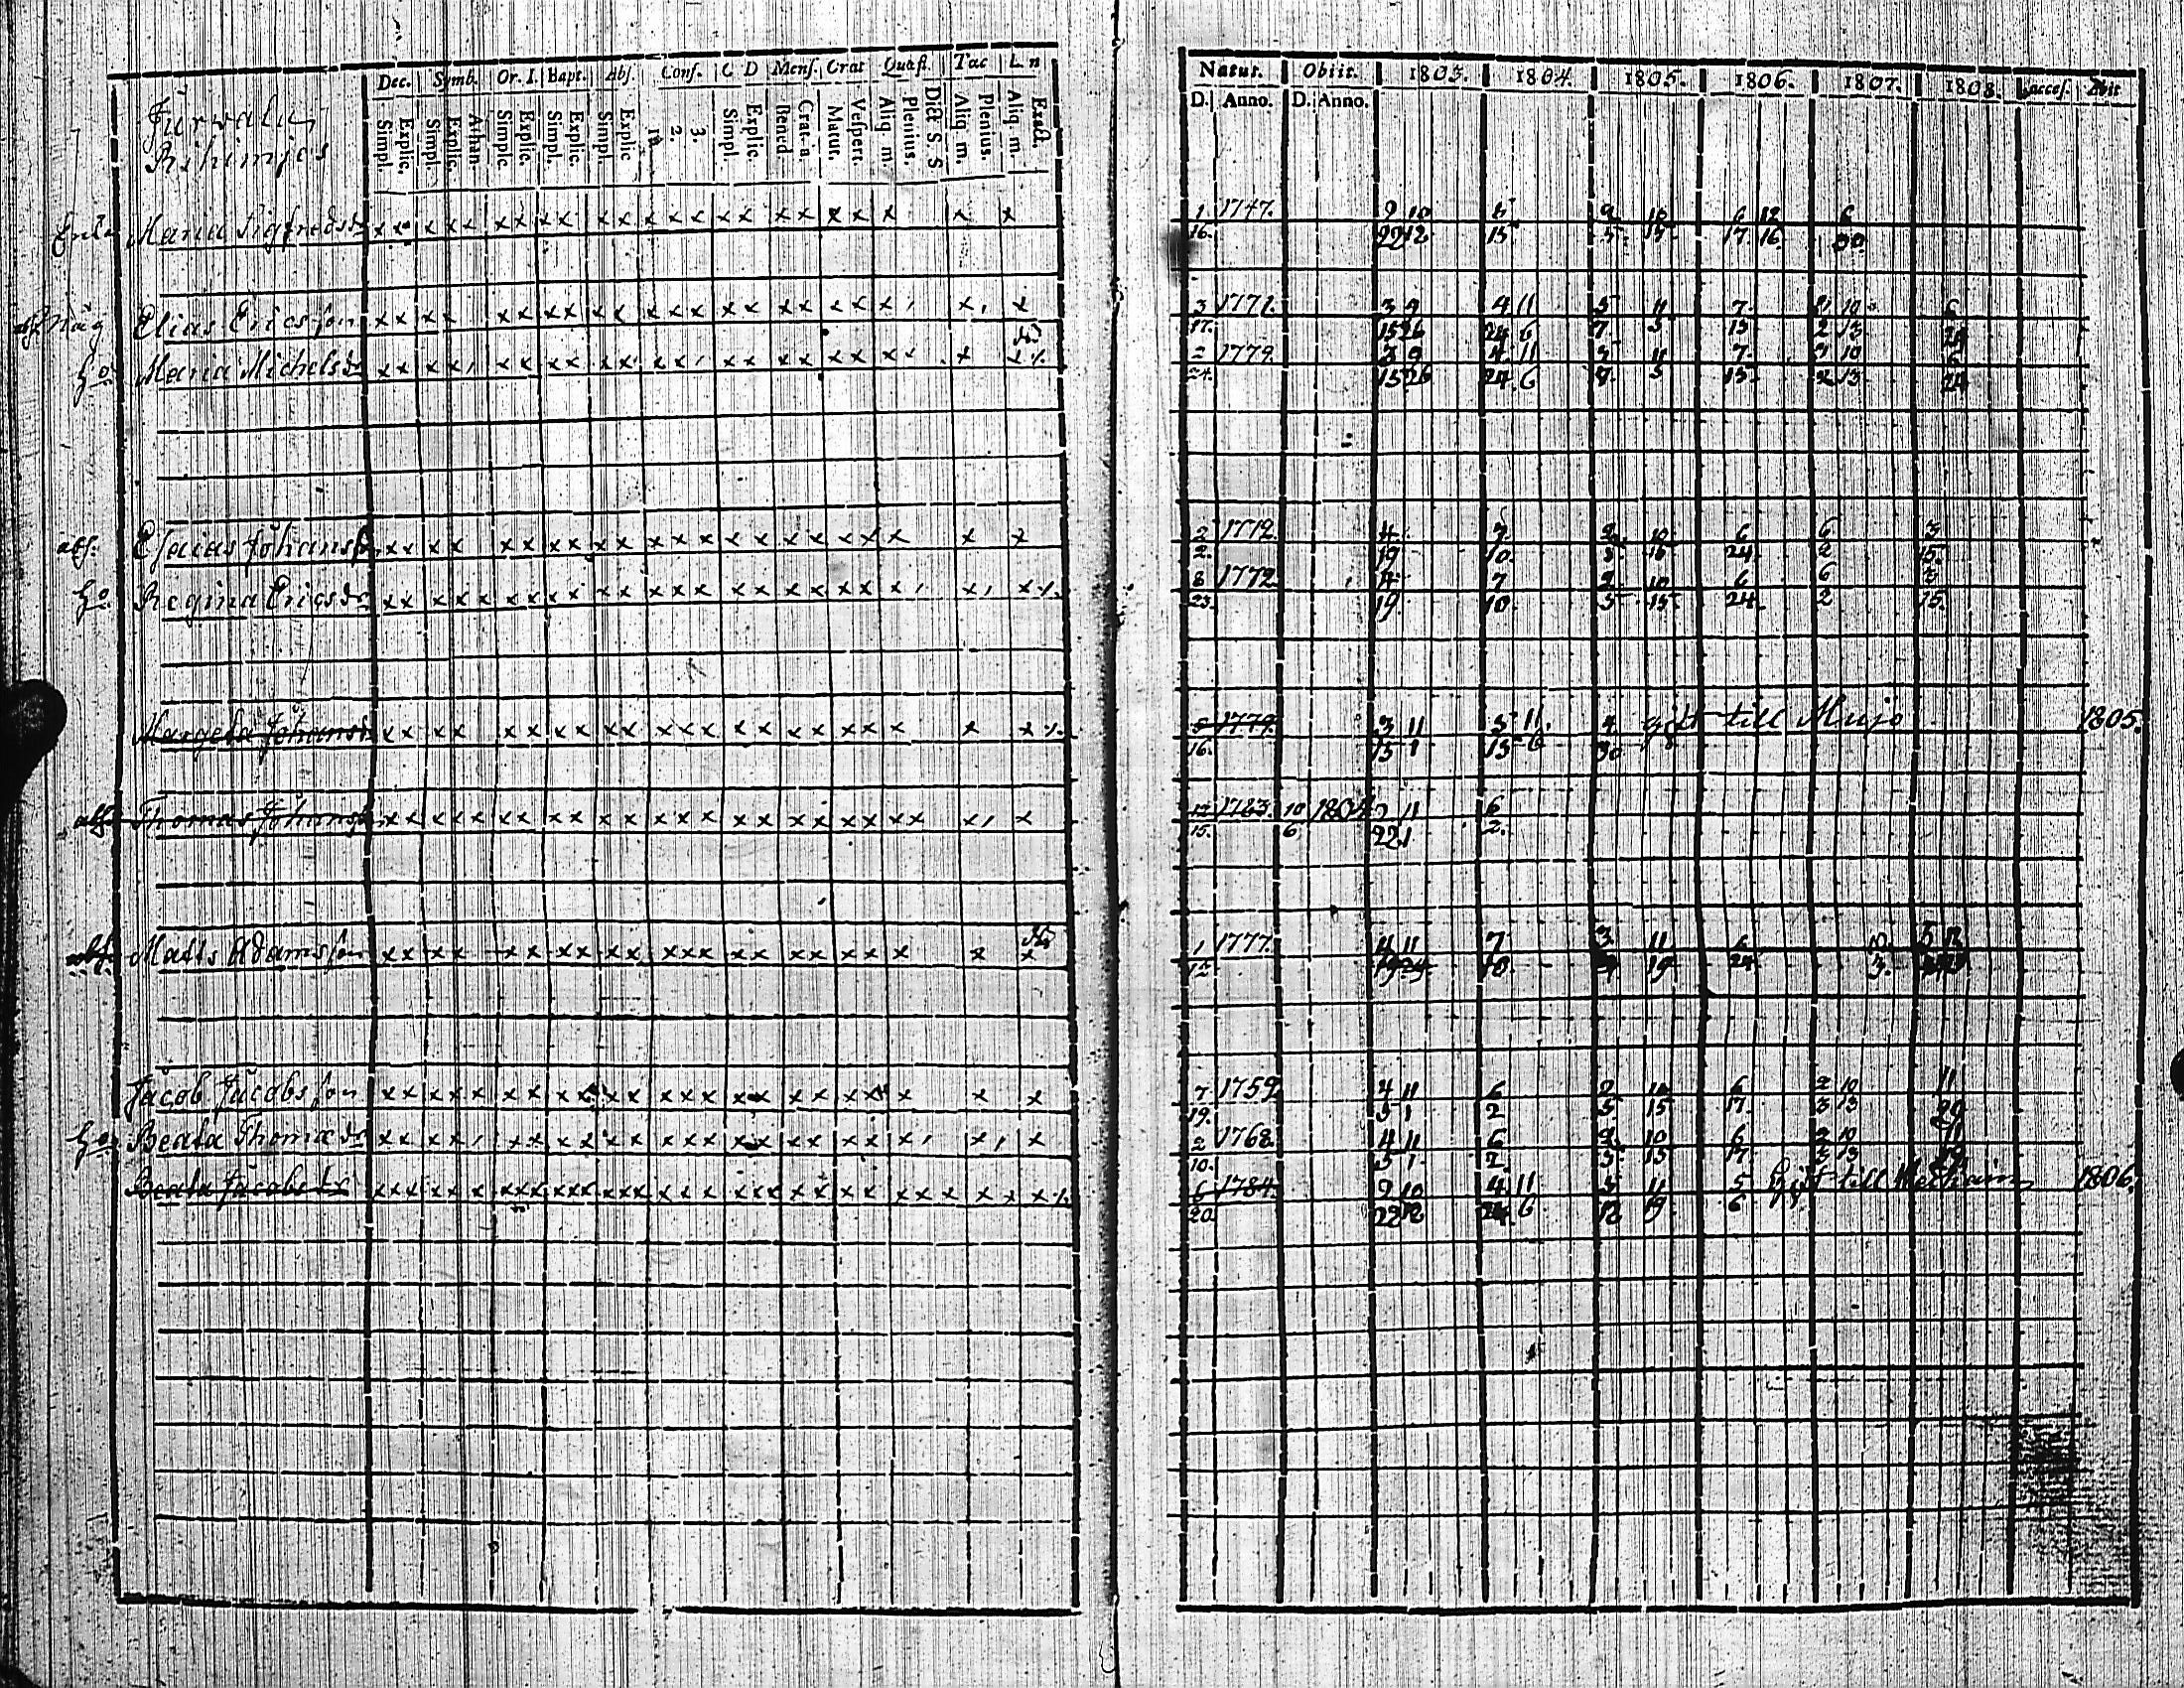 Dec. Symb. Or. I. Bapt. Abs. Conf. C D Mens. Crat Quæst. Tac L n
Simpl. Explic. Simpl. Explic. Athan. Simplic Explic. Simpl. Explic. Simpl. Explic 1. 2. 3. Simpl. Explic. Bened. Crat-a. Matut. Vespert. Aliq m. Plenius. Dict S S Aliq m. Plenius. Aliq m. Exact.
Natur. Obiit. 1803. 1804. 1805. 1806. 1807. 1808. Acces. Abit
D. Anno. D. Anno.
Järvälä
Rihimjos
Enk. Maria Sigfredsdr x x x x x x x x x x x x x x x x x x x x x x x 1 1747. 9 10
16. 22 12 15
Elias Ericsson x x x x x x x x x x x x x x x x x x x x x x 3 1771. 3 9 4 11 5 11 7. 10 6
17. 15 26 24 6 7. 5 15 2 13 24
ho Maria Michelsdr x x x x x x x x x x x x x x x x x x x x x 2 1779. 3 9 4 11 5 11 7. 10 6
24. 15 26 24 6 7. 5 15 2 13 24
Esaias Johanss x x x x x x x x x x x x x x x x x x x x x x 2 1772. 4 7 2 10 6 6 3
2. 19 10. 3 15 24 2 15.
ho. Regina Ericsdr x x x x x x x x x x x x x x x x x x x x x x 8 1772 4 7 2 10 6 6 3
23. 19 10 3 15 24. 2 15.
Margeta Johansdr x x x x x x x x x x x x x x x x x x x x x 1779. 3 11 5 11. 4 gift till Mujo 1805.
16. 15 1 15 6 30
Thomas Johanss x x x x x x x x x x x x x x x x x x x x x x x 12 1783. 10 1804 2 11 6
15. 6 22 1 2.
Matts Adamsson x x x x x x x x x x x x x x x x x x x x x 1 1777. 4 11 7 3 11 6 10.
12. 19 24 10. 19 24 3.
Jacob Jacobsson x x x x x x x x x x x x x x x x x x x x x x 7 1759 4 11 6 2 10 6 2 10 11
19. 3 1 2 3 15 17. 3 13 29
ho Beata Thomædr x x x x x x x x x x x x x x x x x x x x x 2 1768. 4 11 6 2 10 6 2 10 11
10. 3 1. 2. 3. 15 17. 3 13 29
Beata Jacobsdr x x x x x x x x x x x x x x x x x x x x x x x x x x x 6 1784. 9 10 4 11 5 11 5 Gift till 1806.
20. 22 12 24 6 12 19 6